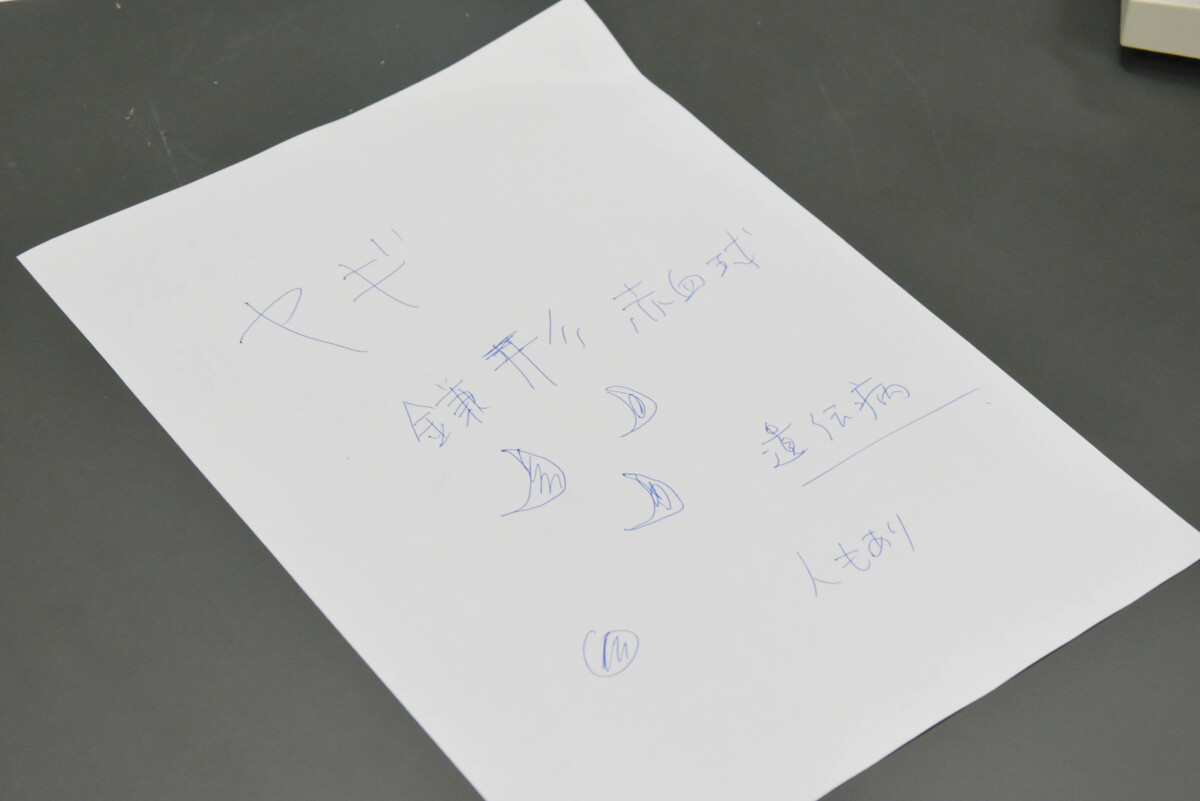 ヤギ
鎌形 赤血球
遺伝病
人もあり